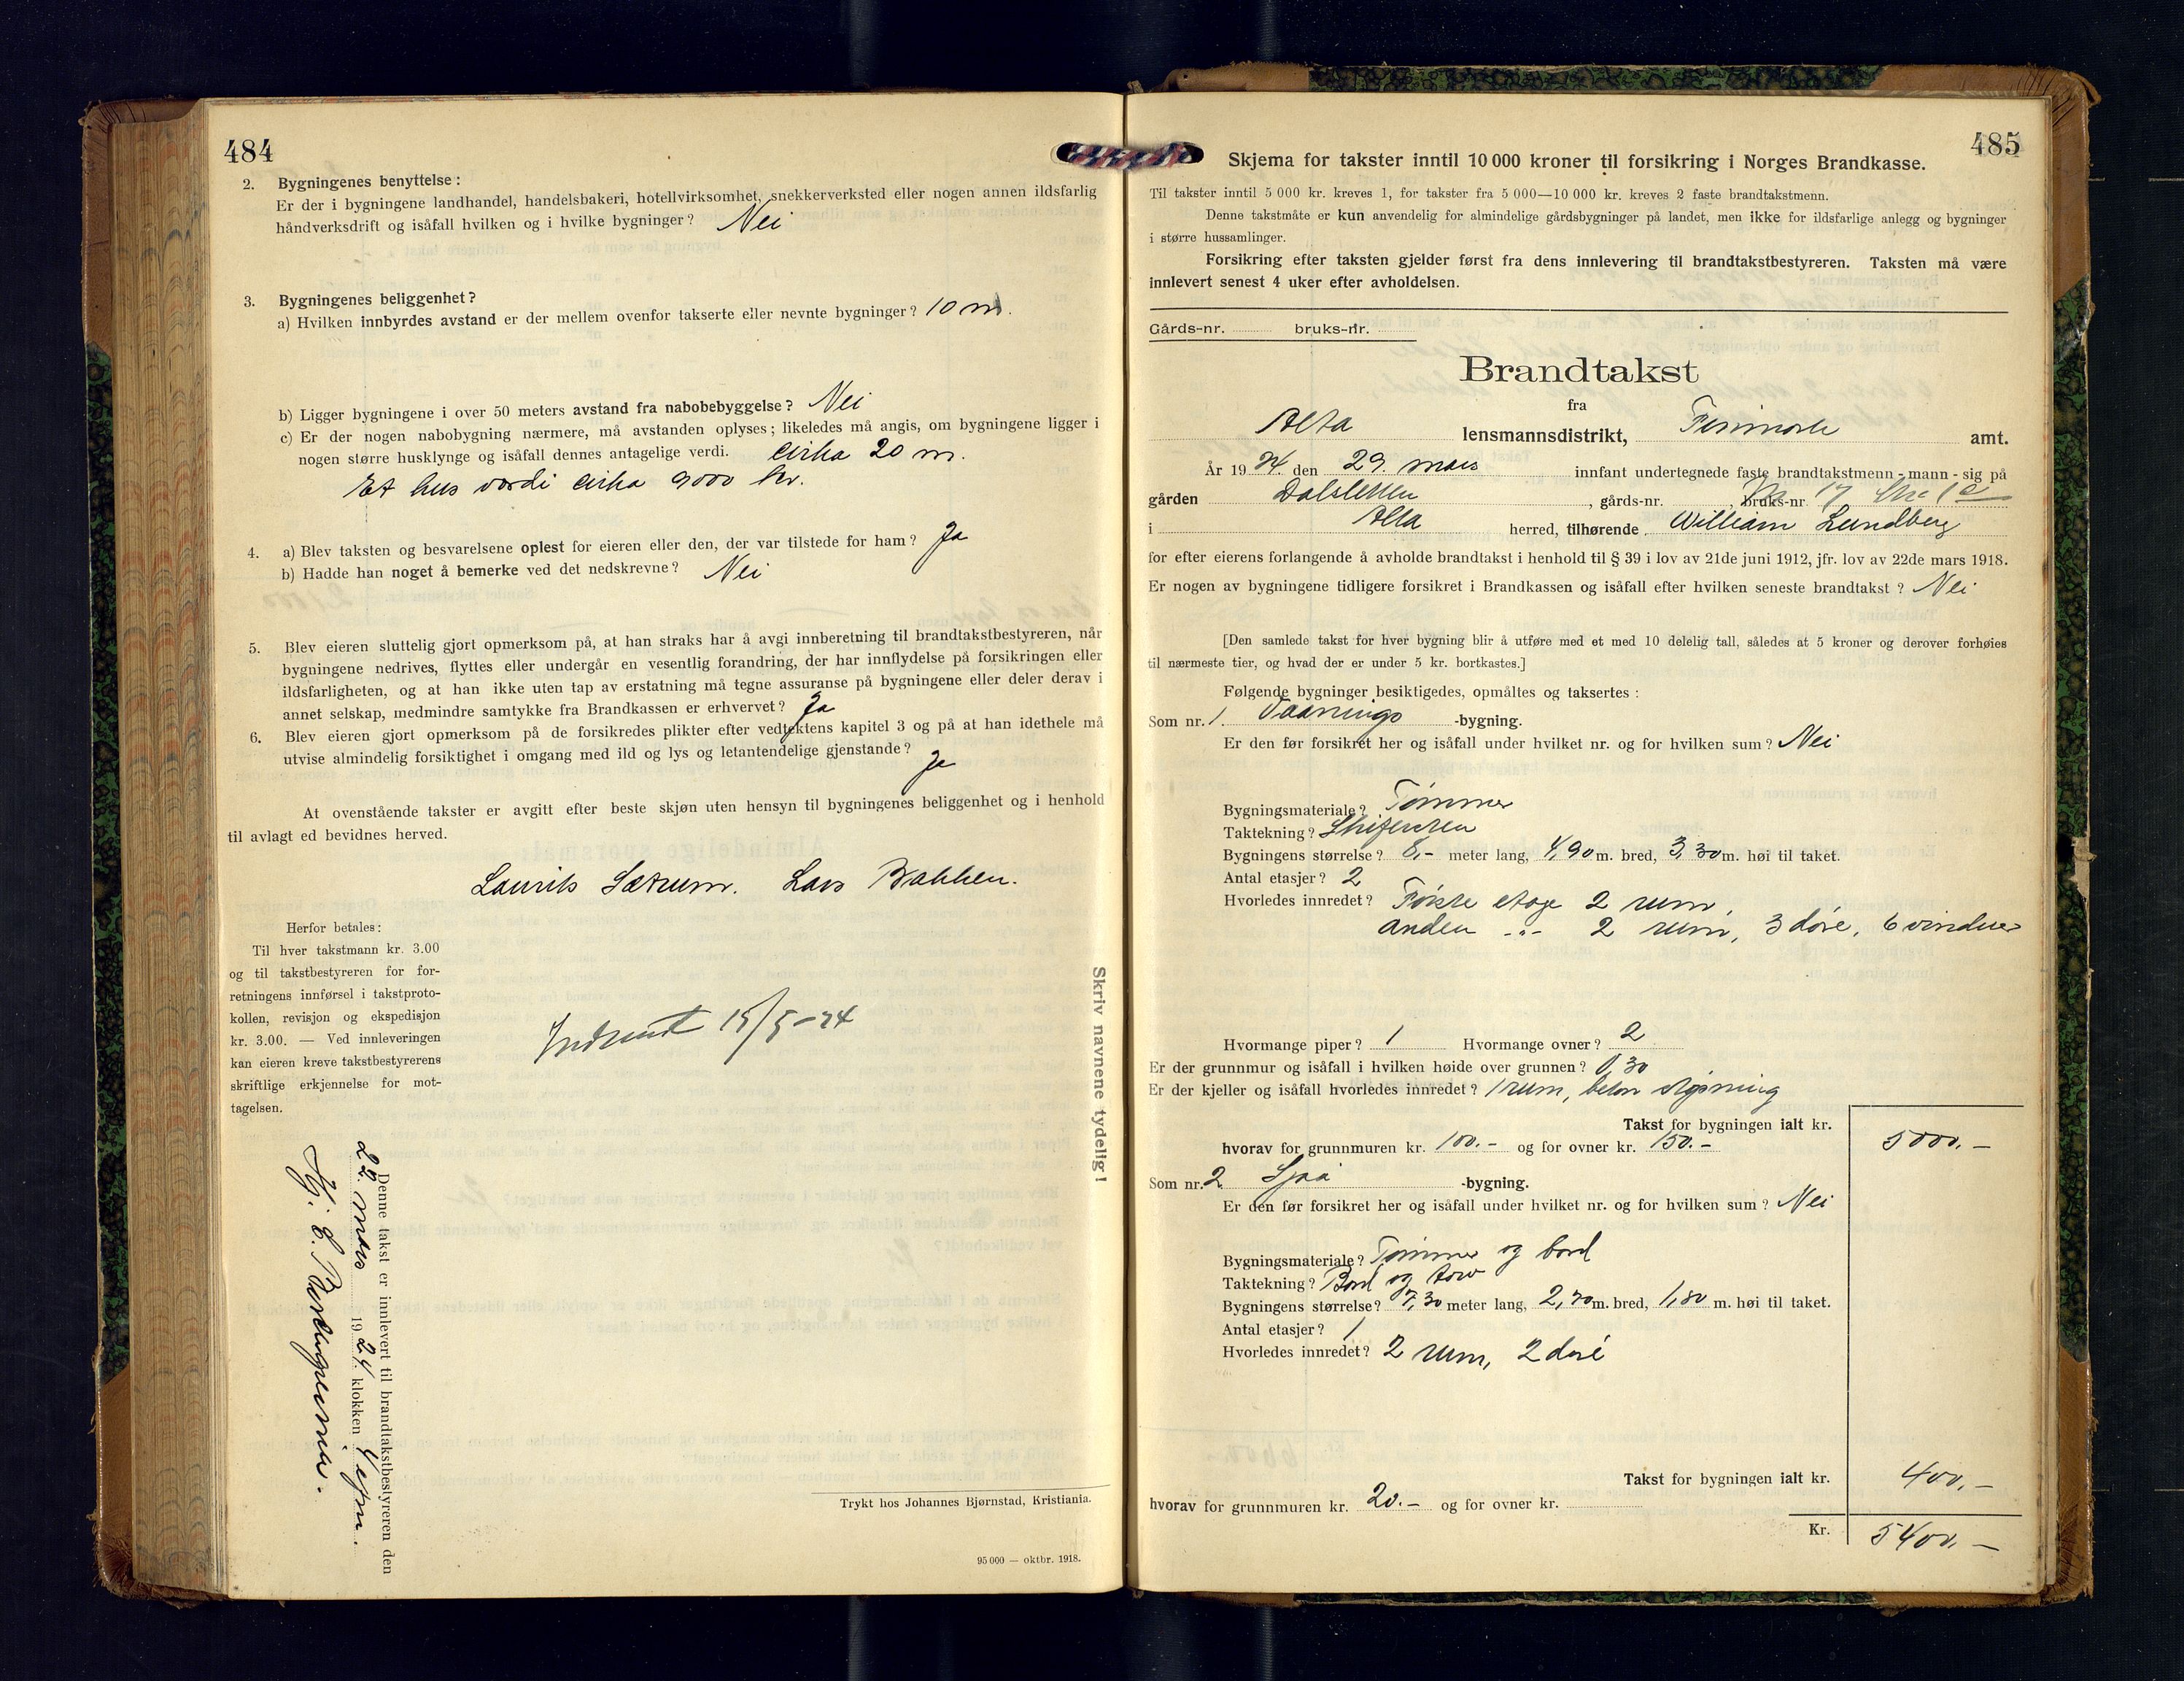 484
2. Bygningenes benyttelse:
Er der i bygningene landhandel, handelsbakeri, hotellvirksomhet, snekkerverksted eller nogen annen ildsfarlig
håndverksdrift og isåfall hvilken og i hvilke bygninger? Nei
3. Bygningenes beliggenhet?
a) Hvilken innbyrdes avstand er der mellem ovenfor takserte eller nevnte bygninger? 10 m.
b) Ligger bygningene i over 50 meters avstand fra nabobebyggelse? Nei
c) Er der nogen nabobygning nærmere, må avstanden oplyses; likeledes må angis, om bygningene ligger i
nogen større husklynge og isåfall dennes antagelige verdi. Cirka 20 m.
Et hus værdi cirka 9000 kr.
4. a) Blev taksten og besvarelsene oplest for eieren eller den, der var tilstede for ham? Ja
b) Hadde han noget å bemerke ved det nedskrevne? Nei
5. Blev eieren sluttelig gjort opmerksom på, at han straks har å avgi innberetning til brandtakstbestyreren, når
bygningene nedrives, flyttes eller undergår en vesentlig forandring, der har innflydelse på forsikringen eller
ildsfarligheten, og at han ikke uten tap av erstatning må tegne assuranse på bygningene eller deler derav i
annet selskap, medmindre samtykke fra Brandkassen er erhvervet? Ja
6. Blev eieren gjort opmerksom på de forsikredes plikter efter vedtektens kapitel 3 og på at han idethele må
utvise almindelig forsiktighet i omgang med ild og lys og letantendelige gjenstande? Ja
At ovenstående takster er avgitt efter beste skjøn uten hensyn til bygningenes beliggenhet og i henhold
til avlagt ed bevidnes herved.
Laurits Sætrum. Lars Bakken.
Herfor betales:
Til hver takstmann kr. 3.00
og til takstbestyreren for for-
retningens innførsel i takstproto-
kollen, revisjon og ekspedisjon
kr. 3.00. — Ved innleveringen
kan eieren kreve takstbestyrerens
skriftlige erkjennelse for mot-
tagelsen.
Indsendt 15/5-24
Skriv navnene tydelig!
Denne takst er innlevert til brandtakstbestyreren den
22 mars 1924 klokken 4 efm.
Hj. E.
Trykt hos Johannes Bjørnstad, Kristiania.
95 000 — oktbr. 1918.
485
Skjema for takster inntil 10 000 kroner til forsikring i Norges Brandkasse.
Til takster inntil 5 000 kr. kreves 1, for takster fra 5 000—10 000 kr. kreves 2 faste brandtakstmenn.
Denne takstmåte er kun anvendelig for almindelige gårdsbygninger på landet, men ikke for ildsfarlige anlegg og bygninger
i større hussamlinger.
Forsikring efter taksten gjelder først fra dens innlevering til brandtakstbestyreren. Taksten må være
innlevert senest 4 uker efter avholdelsen.
Gårds-nr. bruks-nr.
Brandtakst
fra
Alta lensmannsdistrikt, Finmark amt.
År 1924 den 29 mars innfant undertegnede faste brandtakstmenn - mann - sig på
gården Dalsletten, gårds-nr. bruks-nr. 17
i Alta herred, tilhørende William Lundberg
for efter eierens forlangende å avholde brandtakst i henhold til § 39 i lov av 21de juni 1912, jfr. lov av 22de mars 1918.
Er nogen av bygningene tidligere forsikret i Brandkassen og isåfall efter hvilken seneste brandtakst? Nei
[Den samlede takst for hver bygning blir å utføre med et med 10 delelig tall, således at 5 kroner og derover forhøies
til nærmeste tier, og hvad der er under 5 kr. bortkastes.]
Følgende bygninger besiktigedes, opmåltes og taksertes:
Som nr. 1. Vaanings -bygning.
Er den før forsikret her og isåfall under hvilket nr. og for hvilken sum? Nei
Bygningsmateriale? Tømmer
Taktekning? Skifersten
Bygningens størrelse? 8,- meter lang, 4,90 m. bred, 3,30 m. høi til taket.
Antal etasjer? 2
Hvorledes innredet? Første etage 2 rum,
anden -"- 2 rum, 3 døre, 6 vinduer
Hvormange piper? 1 Hvormange ovner? 2
Er der grunnmur og isåfall i hvilken høide over grunnen? 0,30
Er der kjeller og isåfall hvorledes innredet? 1 rum, beton støpning
Takst for bygningen ialt kr. 5000.-
hvorav for grunnmuren kr. 100.- og for ovner kr. 150.-
Som nr. 2. Sjaa -bygning.
Er den før forsikret her og isåfall under hvilket nr. og for hvilken sum? Nei
Bygningsmateriale? Tømmer og bord
Taktekning? Bord og torv
Bygningens størrelse? 7,30 meter lang, 2,70 m. bred, 1,80 m. høi til taket.
Antal etasjer? 1
Hvorledes innredet? 2 rum, 2 døre
Takst for bygningen ialt kr. 400.-
hvorav for grunnmuren kr. 20.- og for ovner kr.
Kr. 5400.-